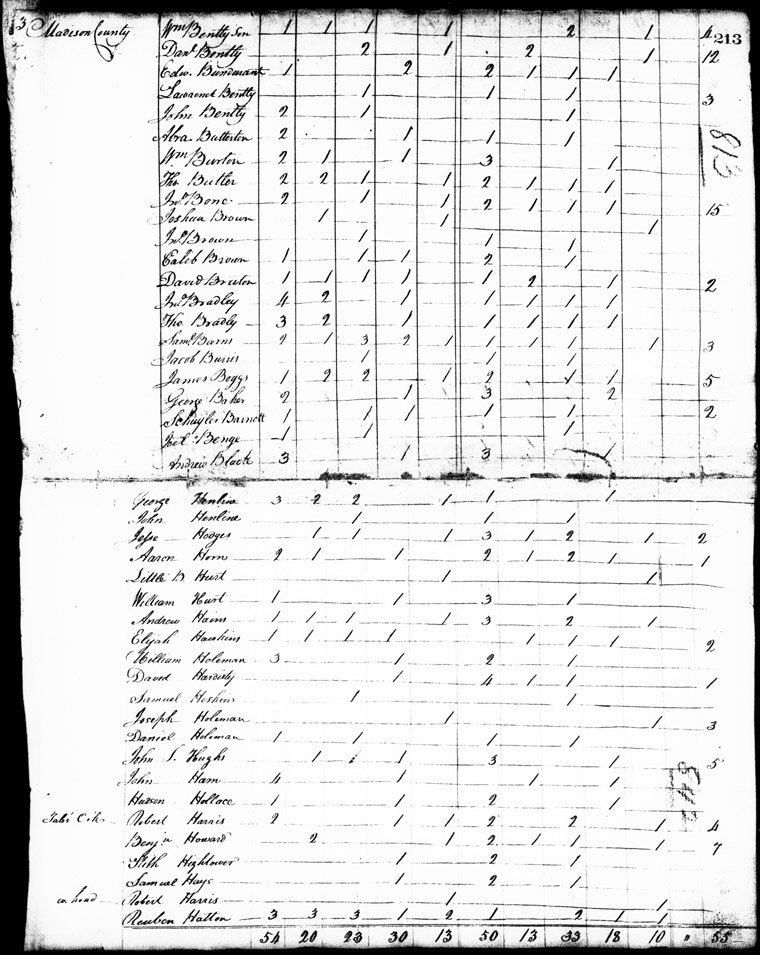 3 Madison County 213
Wm Bently Sen 1 1 1 1 2 1 4
Danl Bently 2 1 2 1 12
Edw. Bundurant 1 2 2 1 1 1
Lawrence Bently 1 1 1 3
John Bently 2 1 1
Abra. Butterton 2 1 1 1
Wm Burton 2 1 1 3 1
Tho Butler 2 2 1 1 2 1 1 1
Jno Bone 2 1 1 2 1 1 1 15
Joshua Brown 1 1 1
Jno Brown 1 1 1
Caleb Brown 1 1 1 2 1
David Breeton 1 1 1 1 1 2 1 2
Jno Bradley 4 2 1 1 1 1 1
Tho Bradly 3 2 1 1 1 1 1
Saml Barns 2 1 3 2 1 1 1 1 1 3
Jacob Burris 1 1 1
James Boggs 1 2 2 1 2 1 1 5
George Baker 2 1 3 2
Schuyler Barnett 1 1 1 1 1 2
Joel Benge 1 1 1
Andrew Black 3 1 3 1
813
George Henline 3 2 2 1 1 1
John Henline 1 1 1
Jesse Hodges 1 1 1 3 1 2 1 2
Aaron Horn 2 1 1 2 1 2 1 1
Little B Hurt 1 1
William Hurt 1 1 3 1
Andrew Hains 1 1 1 1 3 2 1
Elijah Hawkins 1 1 1 1 1 1 1 2
William Holeman 3 1 2 1
David Hardisty 1 4 1 1 1
Samuel Hoskins 1 1
Joseph Holeman 1 1 3
Daniel Holeman 1 1 1 1
John S. Hughs 1 1 1 3 1 5
John Ham 4 1 1 1
Hudson Hollace 1 1 2 1
Robert Harris 2 1 1 2 2 1 4
Benjn Howard 2 1 2 1 1 1 7
Hightower 1 2 1
Samuel Hays 1 2 1
Robert Harris 1 1
Reuben Hatton 3 3 3 1 2 1 2 1 1
54 20 23 30 13 50 13 33 18 10 " 55